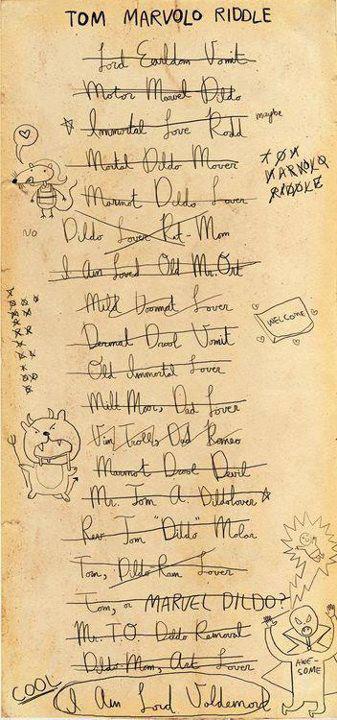 TOM MARVOLO RIDDLE
Lord Earldom Vomit
Motor Marvel Dildo
Immortal Love Rodd
maybe
Modal Dildo Mover
TOM
MARVOLO
RIDDLE
Marmot Dildo Lover
NO
Dildo Lover Rot-Mom
I Am Loved Old Mr. Ort
Mild Doormat Lover
WELCOME
Dermal Drool Vomit
Old Immortal Lover
Melt Moor, Dad Lover
Vim Troll, Dad Romeo
Marmot Drool Devil
Mr. Tom A. Dildolover
Rev Tom "Dildo" Molar
Tom, Dildo Ram Lover
Tom, or MARVEL DILDO?
Mr. T.O. Dildo Removal
Dildo Mom, Art Lover
AWE-
SOME
COOL
I Am Lord Voldemort